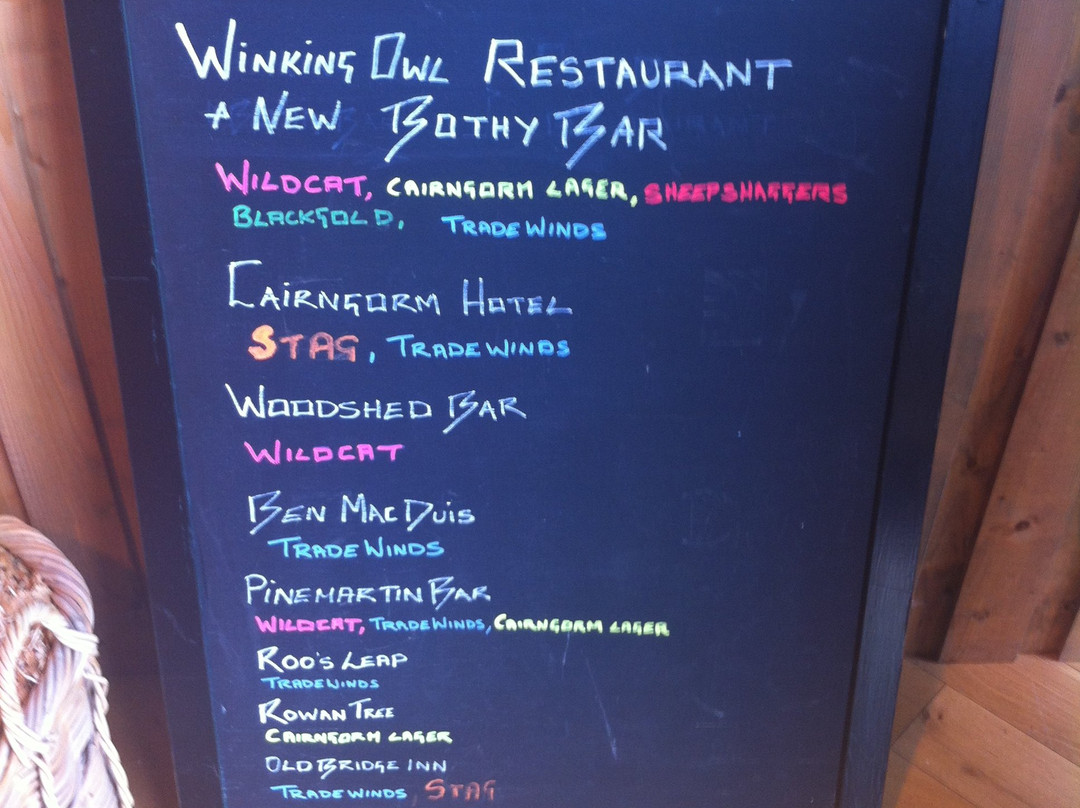 WINKING OWL RESTAURANT
+ NEW BOTHY BAR
WILDCAT, CAIRNGORM LAGER, SHEEPSHAGGERS
BLACKGOLD, TRADEWINDS
CAIRNGORM HOTEL
STAG, TRADEWINDS
WOODSHED BAR
WILDCAT
BEN MAC DUIS
TRADEWINDS
PINEMARTIN BAR
WILDCAT, TRADEWINDS, CAIRNGORM LAGER
ROO'S LEAP
TRADEWINDS
ROWAN TREE
CAIRNGORM LAGER
OLD BRIDGE INN
TRADEWINDS STAG